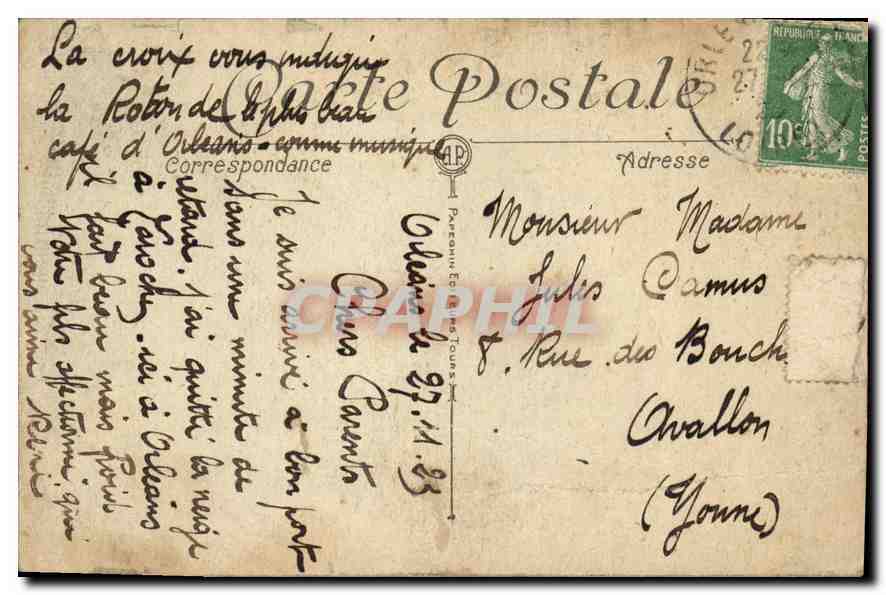 La croix vous indique
la Rotonde le plus beau
café d'Orléans - comme musique
Carte Postale
Correspondance
Adresse
A.P.
PAPEGHIN EDITEURS TOURS
RÉPUBLIQUE FRANC
10c
POSTES
Orléans le 27.11.23
Chers Parents
Je suis arrivé à bon port
sans une minute de
retard. J'ai quitté la neige
à Laroche, ici à Orléans
il fait beau mais froid
Votre fils affectionné qui
vous aime René
Monsieur Madame
Jules Camus
8. Rue des Bouch
Avallon
(Yonne)
CPAPHIL